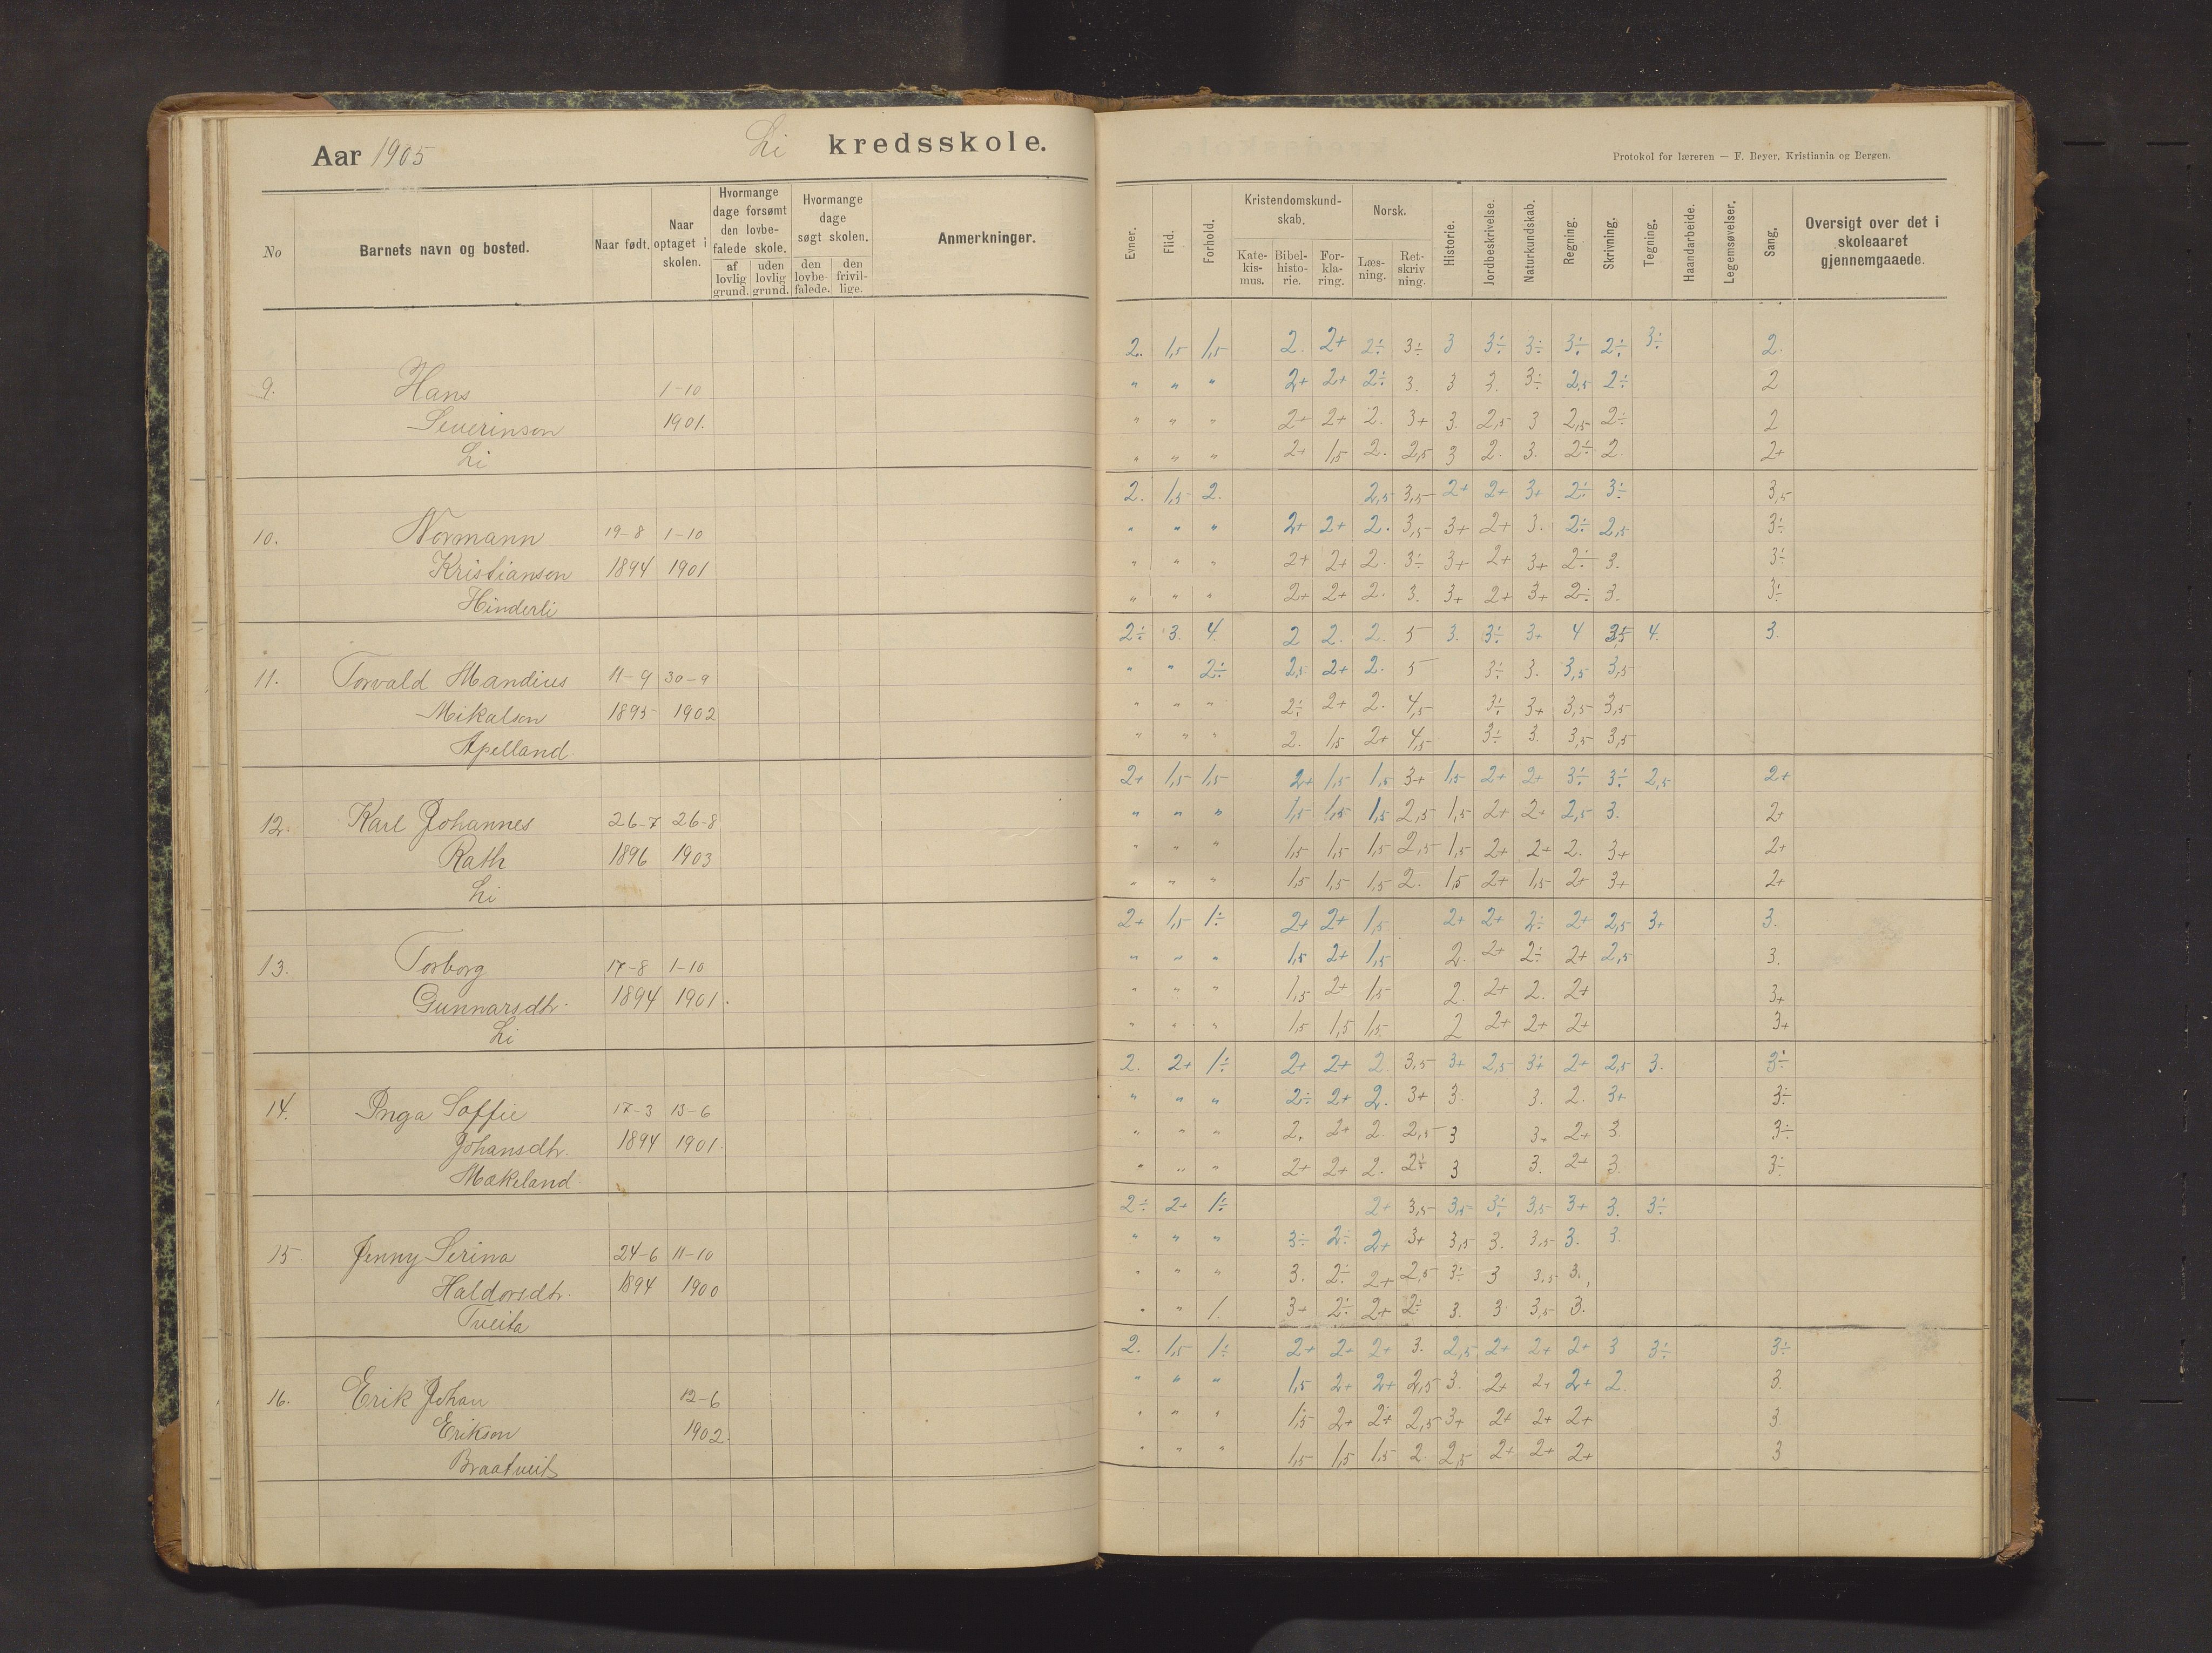 Aar 1905
Li kredsskole.
Protokol for læreren — F. Beyer, Kristiania og Bergen.
No
Barnets navn og bosted.
Naar født.
Naar optaget i skolen.
Hvormange dage forsømt den lovbefalede skole.
af lovlig grund.
uden lovlig grund.
Hvormange dage søgt skolen.
den lovbefalede.
den frivillige.
Anmerkninger.
Evner.
Flid.
Forhold.
Kristendomskundskab.
Katekismus.
Bibelhistorie.
Forklaring.
Norsk.
Læsning.
Retskrivning.
Historie.
Jordbeskrivelse.
Naturkundskab.
Regning.
Skrivning.
Tegning.
Haandarbeide.
Legemsøvelser.
Sang.
Oversigt over det i skoleaaret gjennemgaaede.
2. 1,5 1,5 2. 2+ 2÷ 3÷ 3 3÷ 3÷ 3÷ 2÷ 3÷ 2.
9. Hans 1-10 " " " 2+ 2+ 2÷ 3. 3 3. 3÷ 2,5 2÷ 2
Severinson 1901. " " " 2+ 2+ 2. 3+ 3. 2,5 3 2,5 2÷ 2
Li " " " 2+ 1,5 2. 2,5 3 2. 3. 2÷ 2. 2+
2. 1,5 2. 2,5 3,5 2+ 2+ 3+ 2÷ 3÷ 3,5
10. Normann 19-8 1-10 " " " 2+ 2+ 2. 3,5 3+ 2+ 3. 2÷ 2,5 3÷
Kristianson 1894 1901 " " " 2+ 2+ 2. 3÷ 3+ 2+ 3+ 2÷ 3. 3÷
Hinderli " " " 2+ 2+ 2. 3. 3+ 2+ 3+ 2÷ 3. 3÷
2÷ 3. 4. 2 2. 2. 5 3. 3÷ 3+ 4 3,5 4. 3.
11. Torvald Mandius 11-9 30-9 " " 2÷ 2,5 2+ 2. 5 3÷ 3. 3,5 3,5
Mikalson 1895 1902 " " " 2÷ 2+ 2. 4,5 3÷ 3+ 3,5 3,5
Apelland. " " " 2. 1,5 2+ 4,5 3÷ 3. 3,5 3,5
2+ 1,5 1,5 2+ 1,5 1,5 3+ 1,5 2+ 2+ 3÷ 3÷ 2,5 2+
12. Karl Johannes 26-7 26-8 " " " 1,5 1,5 1,5 2,5 1,5 2+ 2+ 2,5 3. 2+
Rath 1896 1903 " " " 1,5 1,5 1,5 2,5 1,5 2+ 2+ 2. 3+ 2+
Li " " " 1,5 1,5 1,5 2. 1,5 2+ 1,5 2+ 3+ 2+
2+ 1,5 1÷ 2+ 2+ 1,5 2+ 2+ 2÷ 2+ 2,5 3+ 3.
13. Torborg 17-8 1-10 " " " 1,5 2+ 1,5 2. 2+ 2÷ 2+ 2,5 3.
Gunnarsdtr. 1894 1901. " " " 1,5 2+ 1,5 2. 2+ 2. 2+ 3+
Li " " " 1,5 1,5 1,5 2 2+ 2+ 2+ 3+
2. 2+ 1÷ 2+ 2+ 2. 3,5 3+ 2,5 3+ 2+ 2,5 3. 3÷
14. Inga Soffie 17-3 13-6 " " " 2÷ 2+ 2. 3+ 3. 3. 2. 3+ 3÷
Johansdtr. 1894 1901. " " " 2. 2+ 2. 2,5 3 3+ 2+ 3. 3÷
Mækeland. " " " 2+ 2+ 2. 2÷ 3 3. 2+ 3. 3÷
2÷ 2+ 1÷ 2+ 3,5 3,5 3÷ 3,5 3+ 3. 3÷
15 Jenny Serina 24-6 11-10 " " " 3÷ 2÷ 2+ 3+ 3,5 3. 3,5 3. 3.
Haldorsdtr. 1894 1900 " " " 3. 2÷ 2+ 2,5 3÷ 3 3,5 3.
Tveita " " 1. 3+ 2÷ 2+ 2÷ 3. 3 3,5 3.
2. 1,5 1÷ 2+ 2+ 2+ 3. 2,5 2+ 2+ 2+ 3 3÷ 3÷
16. Erik Johan 12-6 " " " 1,5 2+ 2+ 2,5 3. 2+ 2+ 2+ 2. 3.
Erikson 1902. " " " 1,5 2+ 2+ 2,5 3+ 2+ 2+ 2+ 3
Braatveit " " " 1,5 1,5 1,5 2. 2,5 2+ 2+ 2+ 3